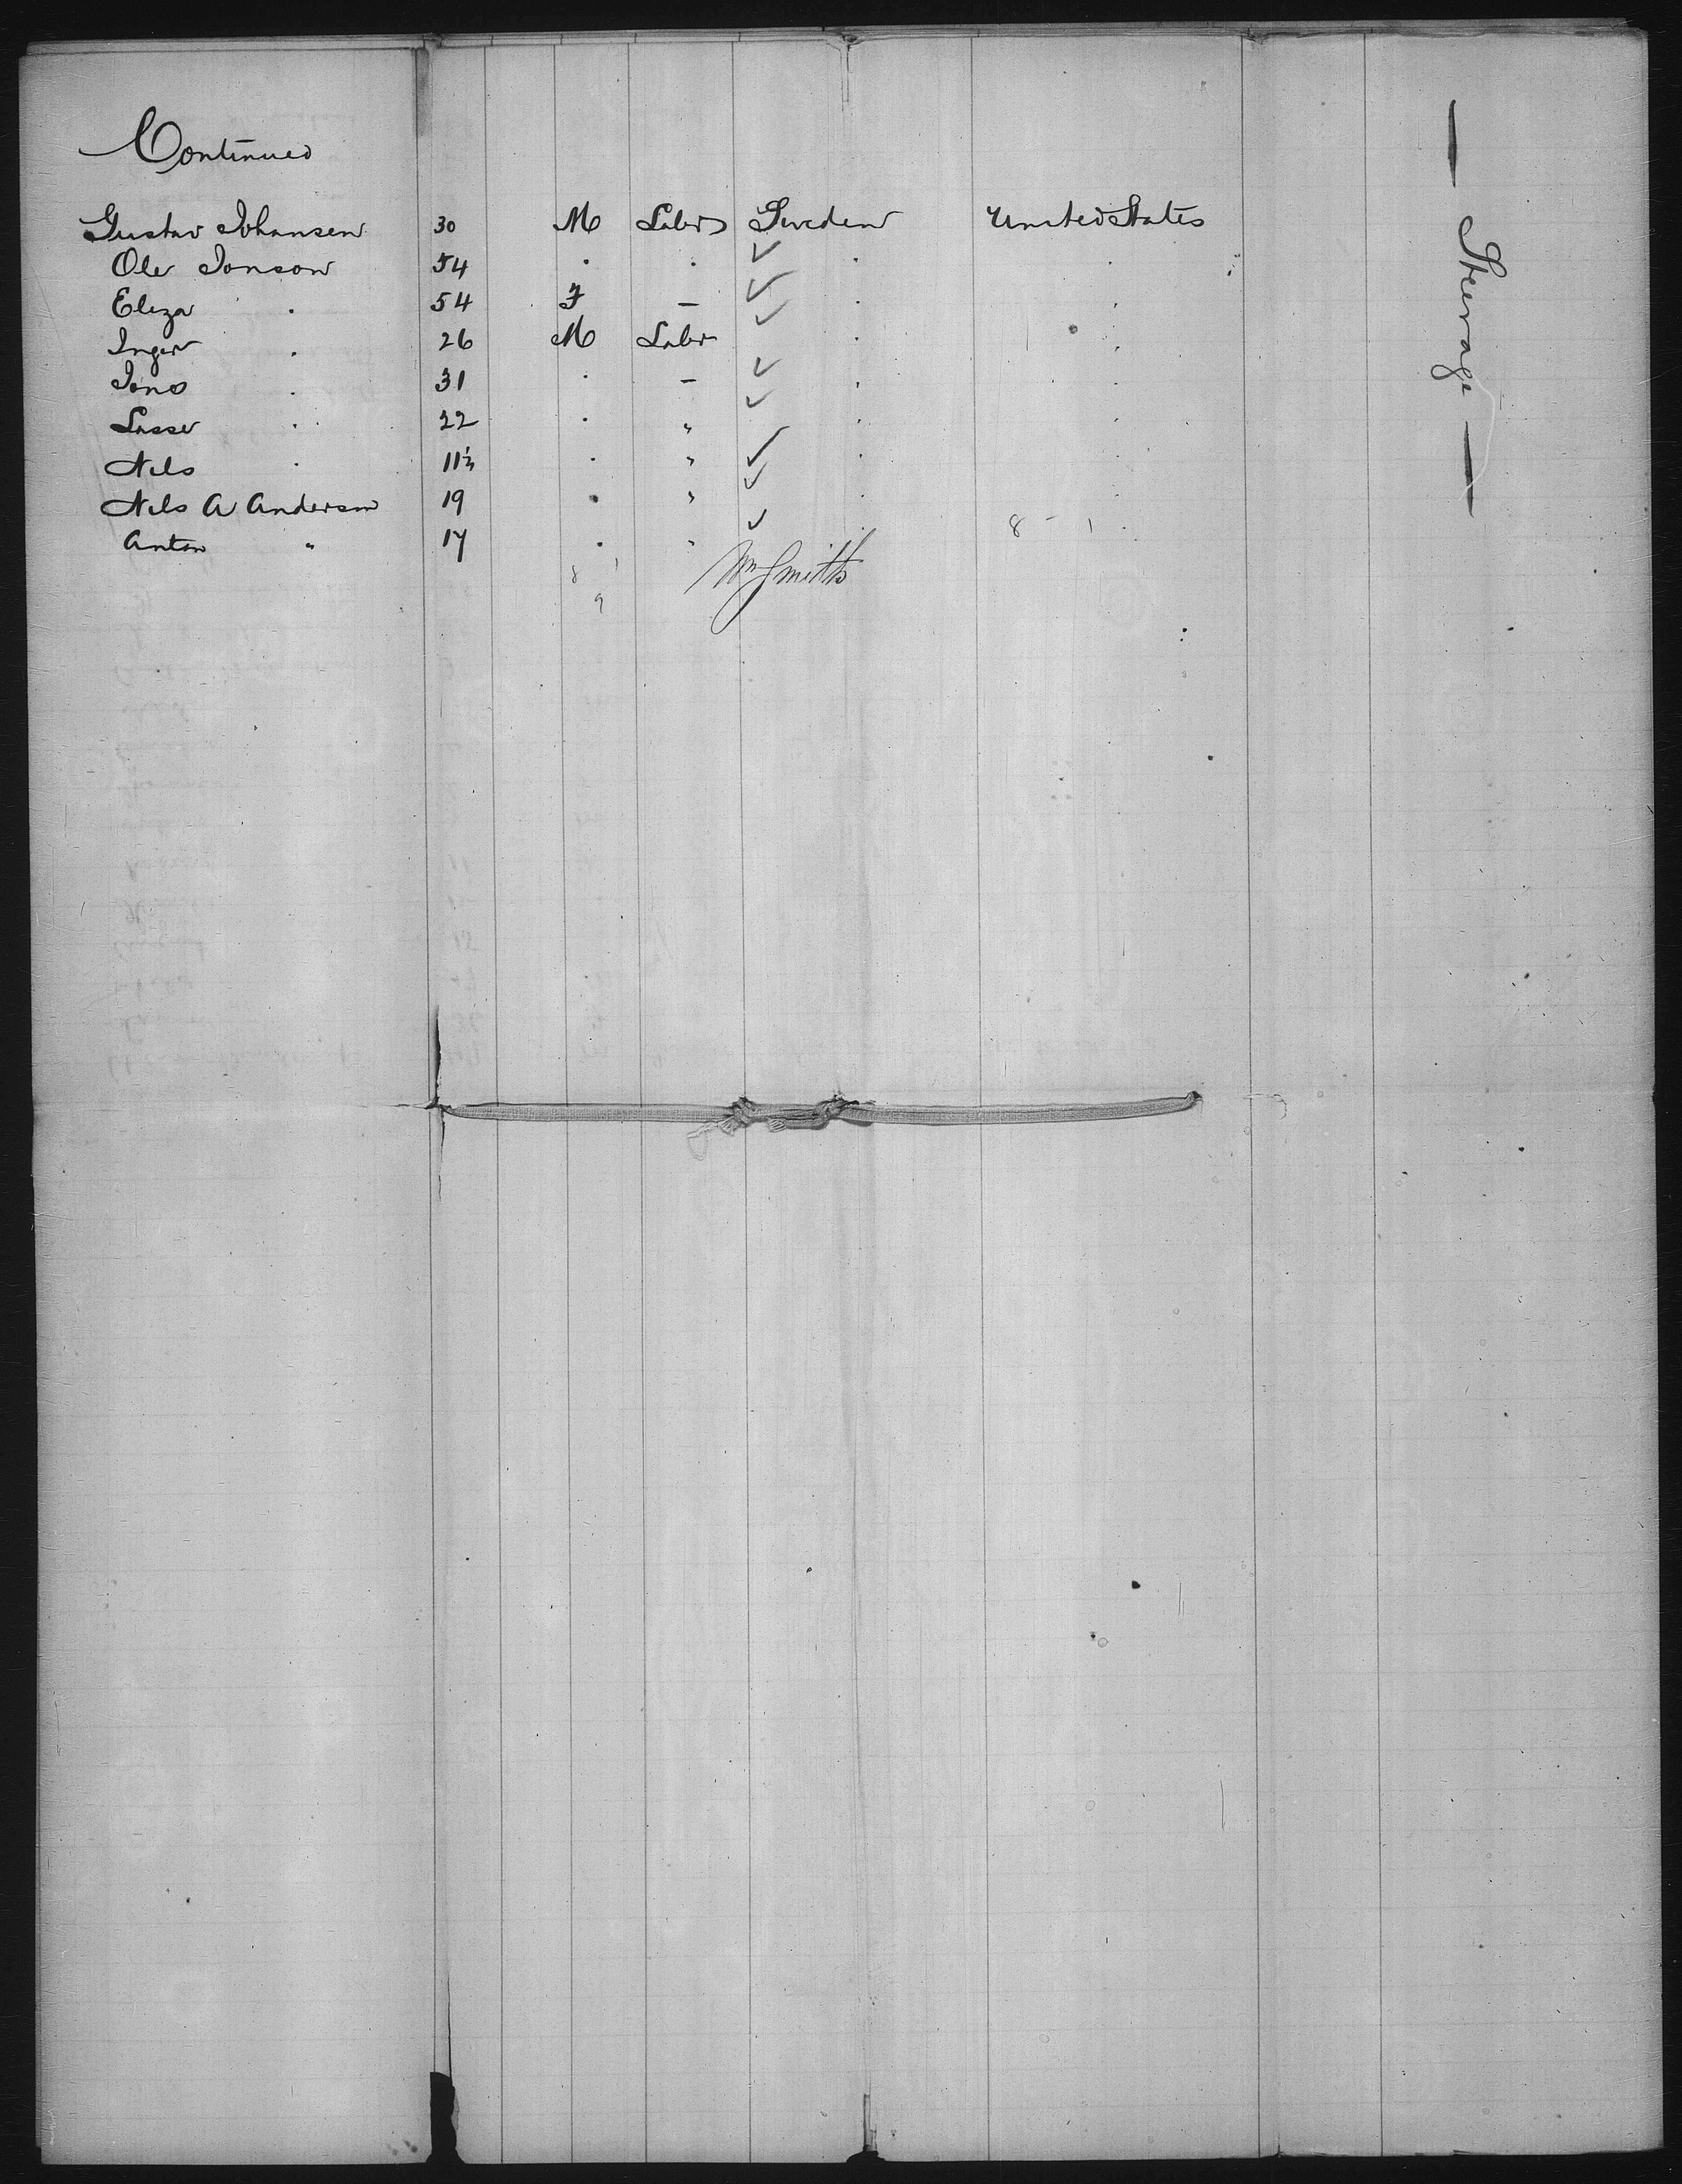 Continued
Gustav Johansen 30 M Labr Sweden United States
Ole Jonson 54 . . .
Eliza . 54 F — . .
Inger . 26 M Labr . .
Jons . 31 . — . .
Lasse . 22 . " . .
Nils . 11½ . " . .
Nils A Anderson 19 . " . .
Anton " 17 . "
8 - 1
8 1
9
Wm Smith
— Steerage —